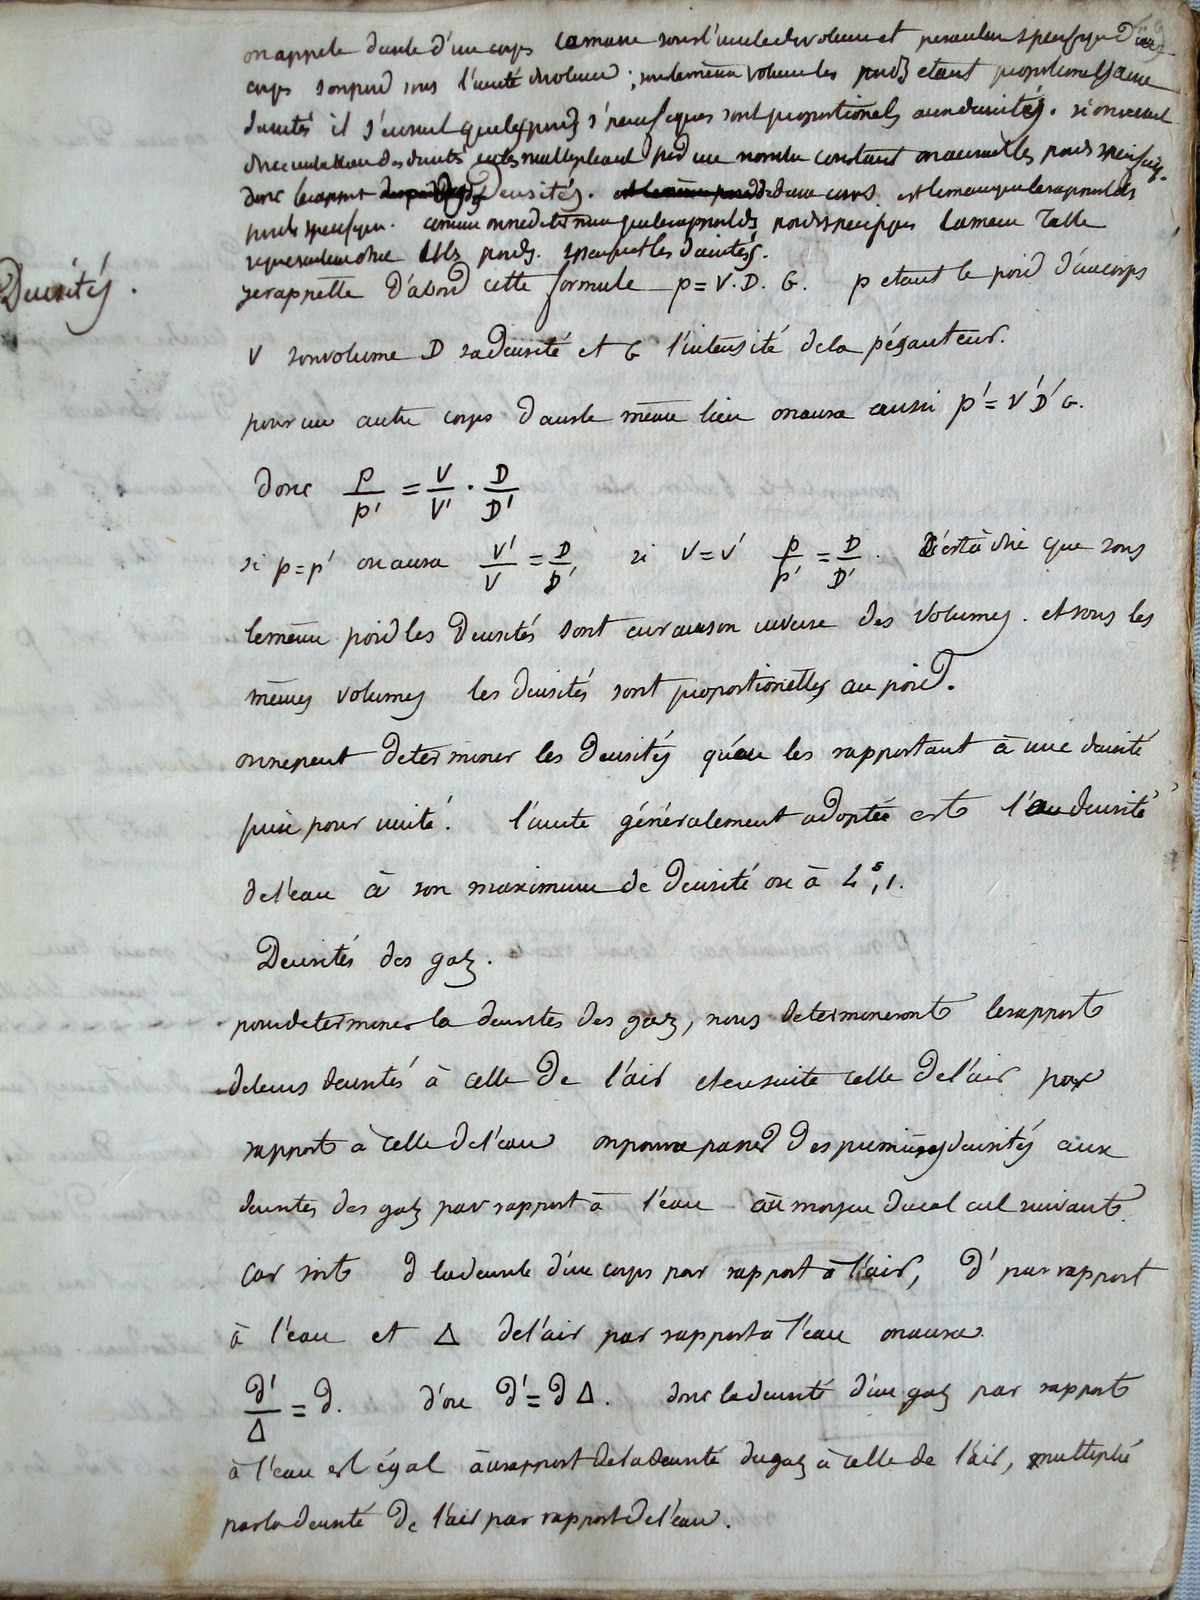 on appele densité d'un corps la masse sous l'unité de volume et pesanteur specifique d'un
corps son poid sous l'unité de volume ; sous le même volume les poids etant proportionels aux
densités il s'ensuit que les poids spécifiques sont proportionels aux densités. si on veut
des densités en les multipliant par un nombre constant on aura les poids specifiq.
donc le rapport densités. est le même que le rapport des
poids specifiques. comme on ne determine que le rapport des poids specifiques la même table
les poids specifiq et les densités.
Densités.
je rappelle d'abord cette formule p = V. D. G. p etant le poid d'un corps
V son volume D sa densité et G l'intensité de la pésanteur.
pour un autre corps dans le même lieu on aura aussi p' = V' D' G.
donc P/P' = V/V' . D/D'
si p = p' on aura V'/V = D/D' si V = V' P/P' = D/D' . C'est à dire que sous
le même poid les densités sont en raison inverse des volumes. et sous les
mêmes volumes les densités sont proportionelles au poid.
on ne peut determiner les densités qu'en les rapportant à une densité
prise pour unité. l'unité généralement adoptée est la densité
de l'eau à son maximum de densité ou à 4°,1.
Densités des gaz.
pour determiner la densités des gaz, nous determinerons le rapport
de leurs densités à celle de l'air et ensuite celle de l'air par
rapport à celle de l'eau on pourra passer des premières densités aux
densités des gaz par rapport à l'eau au moyen du calcul suivant.
Car soit d la densité d'un corps par rapport à l'air, d' par rapport
à l'eau et Δ de l'air par rapport à l'eau on aura
d'/Δ = d. d'ou d' = d Δ. donc la densité d'un gaz par rapport
à l'eau est égal au rapport de la densité du gaz à celle de l'air, multiplié
par la densité de l'air par rapport de l'eau.